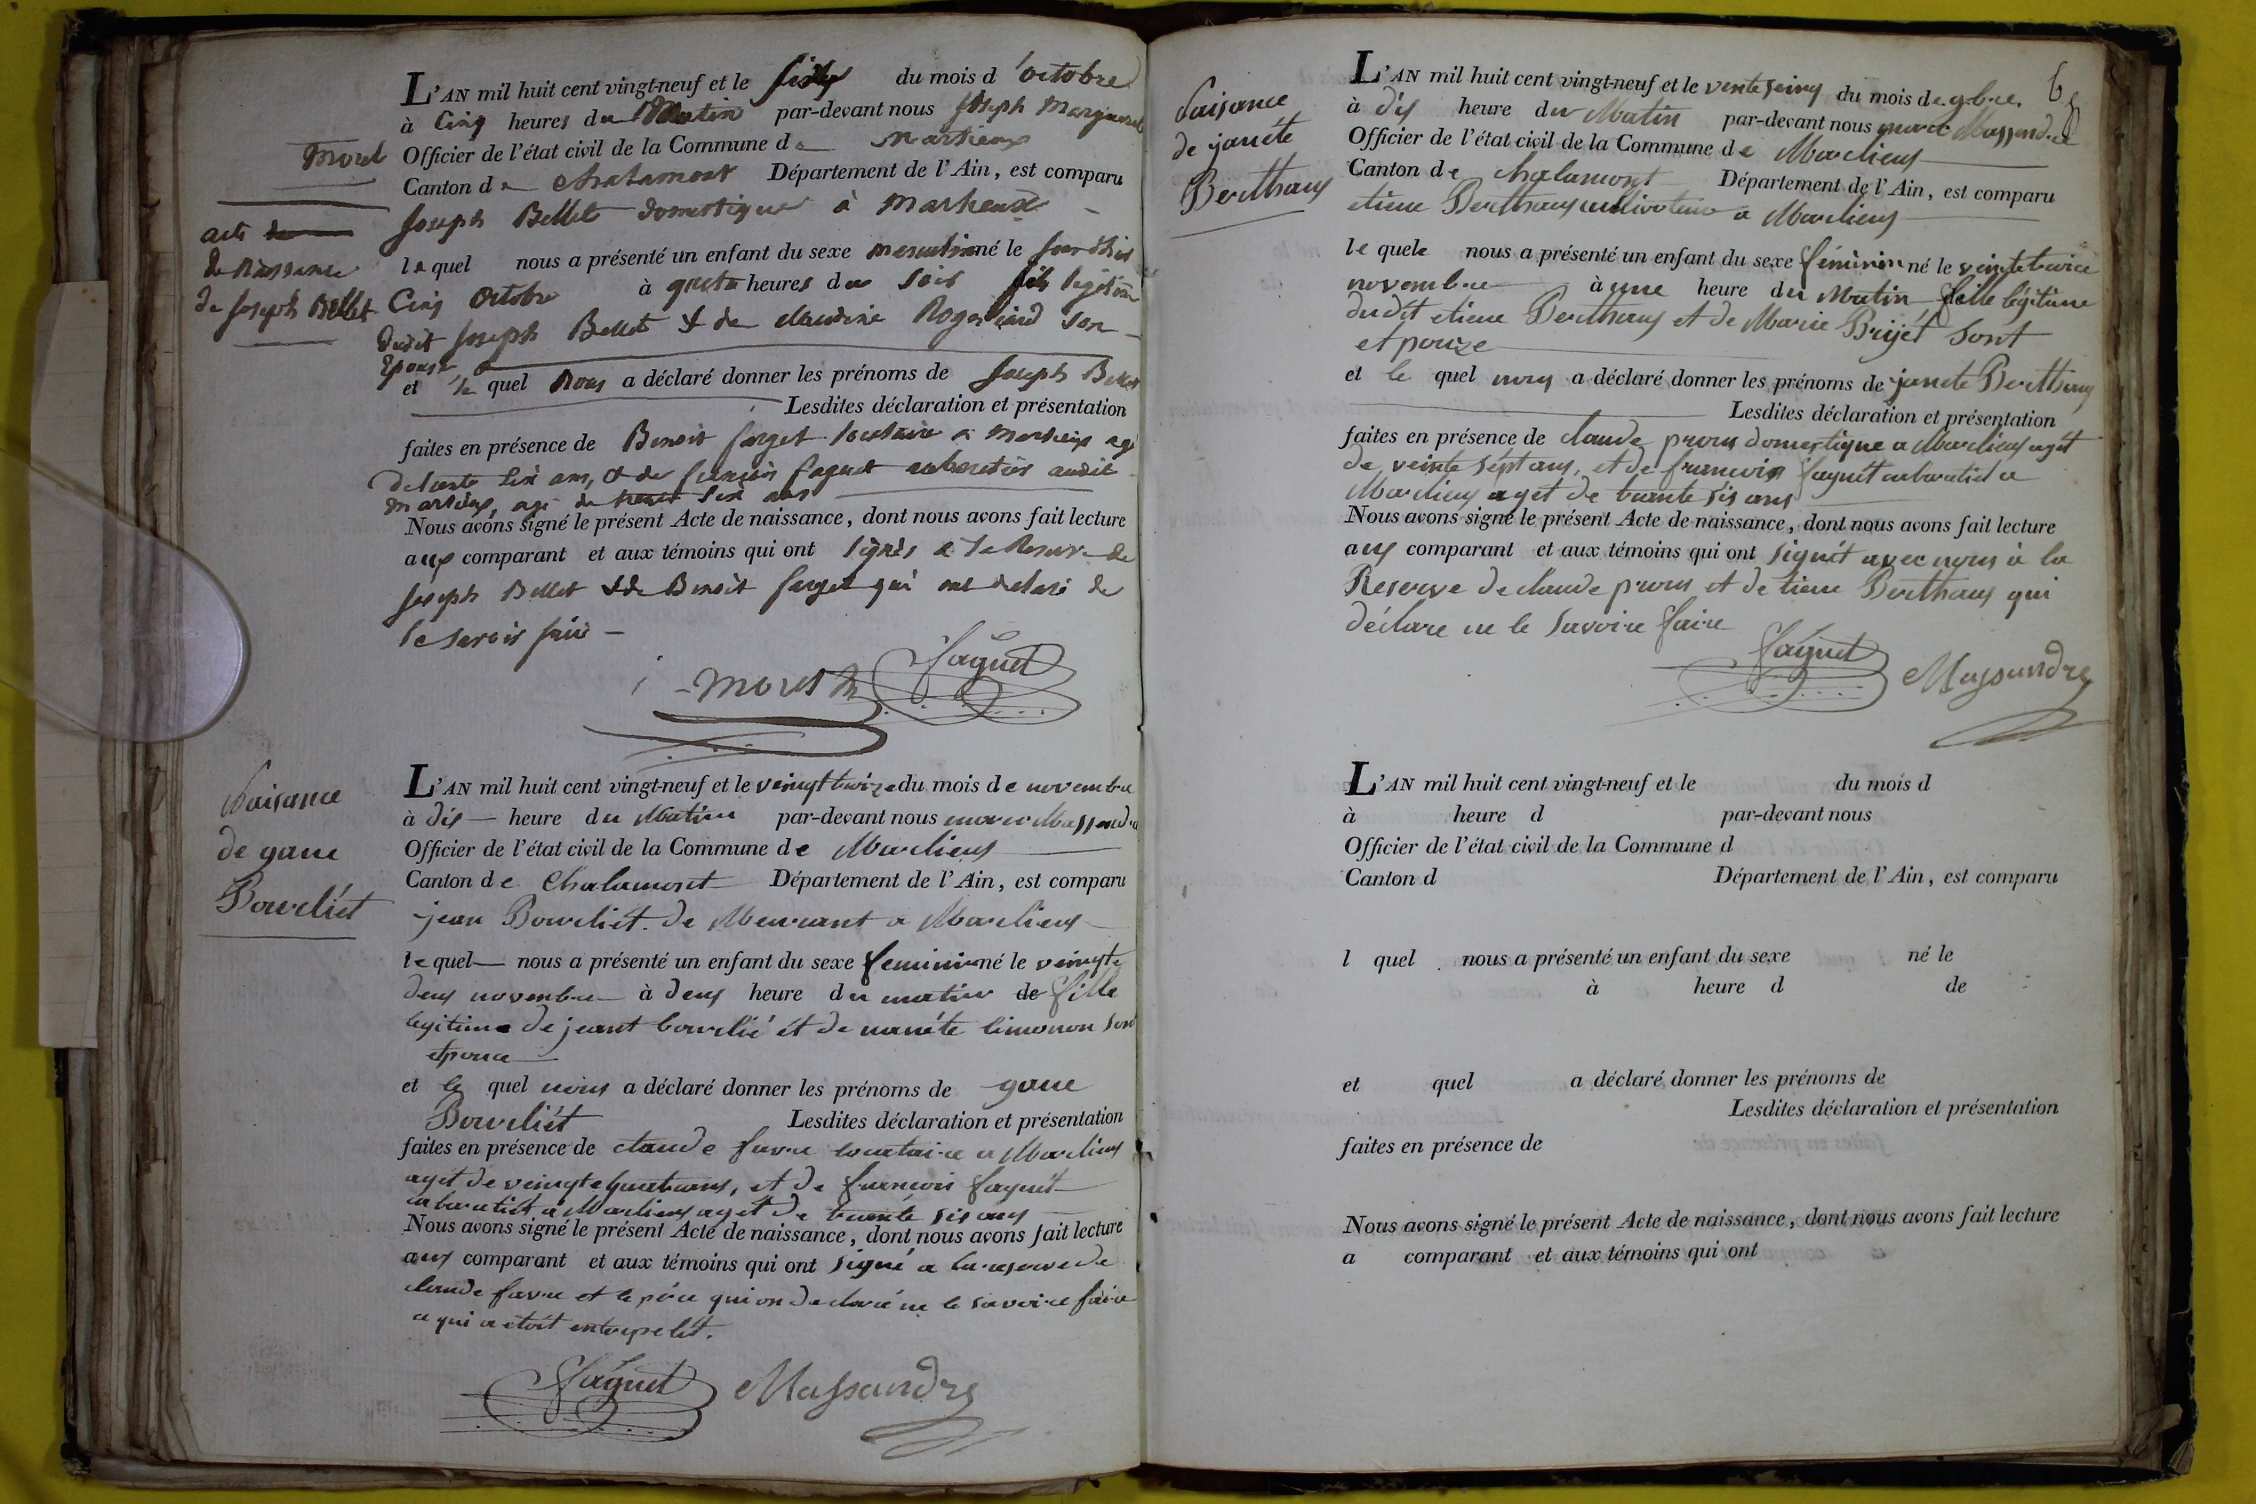 L'AN mil huit cent vingt-neuf et le six du mois d'octobre
à Cinq heures du Matin par-devant nous Joseph
Morel
Officier de l'état civil de la Commune de Marlieux
Canton de Chalamont Département de l'Ain, est comparu
Joseph Bellet domestique à Marlieux
acte de
de Naissance
de Joseph Bellet
lequel nous a présenté un enfant du sexe masculin né le jourdhier
Cinq Octobre à quatre heures du Soir fils légitime
dudit Joseph Bellet & de claudine son
Epouse
et le quel Nous a déclaré donner les prénoms de Joseph Bellet
Lesdites déclaration et présentation
faites en présence de Benoit forget locataire à Marlieux agé
de six ans, & de françois faguet cabaretier audit
Marlieux, agé de trente six ans
Nous avons signé le présent Acte de naissance, dont nous avons fait lecture
aux comparant et aux témoins qui ont signés à la Reserve de
Joseph Bellet & de Benoit forget qui ont déclaré de
le savoir faire
Morel faguet
Naisance
de gane
Bourliét
L'AN mil huit cent vingt-neuf et le veingt troize du mois de novembre
à dix heure du Matin par-devant nous marc Massandre
Officier de l'état civil de la Commune de Marlieux
Canton de Chalamont Département de l'Ain, est comparu
jean Bourliét de Meurant a Marlieux
lequel nous a présenté un enfant du sexe feminin né le veingte
deux novembre à deux heure du matin de fille
legitime de jeant bourlié ét de manéte limonon son
etpouce
et le quel nous a déclaré donner les prénoms de gane
Bourliét Lesdites déclaration et présentation
faites en présence de claude favre locataire a Marlieux
agét de veingte quatrans, et de francois faguét
cabaratiét a Marlieux agét de trainte six ans
Nous avons signé le présent Acte de naissance, dont nous avons fait lecture
aux comparant et aux témoins qui ont signé a la reserve de
claude favre et le pére qui on declaré ne le savoire faire
a qui a etoit enterpelét.
faguet Massandre
6
Naisance
de janéte
Berthaux
L'AN mil huit cent vingt-neuf et le du mois de 9bre
à dix heure du Matin par-devant nous marc Massandre
Officier de l'état civil de la Commune de Marlieux
Canton de chalamont Département de l'Ain, est comparu
etiene Berthaux cultivateur a Marlieux
le quele nous a présenté un enfant du sexe féminin né le veingtetroice
novembre à une heure du Matin fille légitime
dudit etiene Berthaux et de Marie Brijét Sont
etpouze
et le quel nous a déclaré donner les prénoms de janete Berthaux
Lesdites déclaration et présentation
faites en présence de claude prous domestique a Marlieux agét
de veinte sépt ans, et de francois faguét cabaratiét a
Marlieux agét de trainte six ans
Nous avons signé le présent Acte de naissance, dont nous avons fait lecture
aux comparant et aux témoins qui ont signét avec nous à la
Reserve de claude prous et detiene Berthaux qui
déclare ne le savoire faire
faguet Massandre
L'AN mil huit cent vingt-neuf et le du mois d
à heure d par-devant nous
Officier de l'état civil de la Commune d
Canton d Département de l'Ain, est comparu
l quel nous a présenté un enfant du sexe né le
à heure d de
et quel a déclaré donner les prénoms de
Lesdites déclaration et présentation
faites en présence de
Nous avons signé le présent Acte de naissance, dont nous avons fait lecture
a comparant et aux témoins qui ont